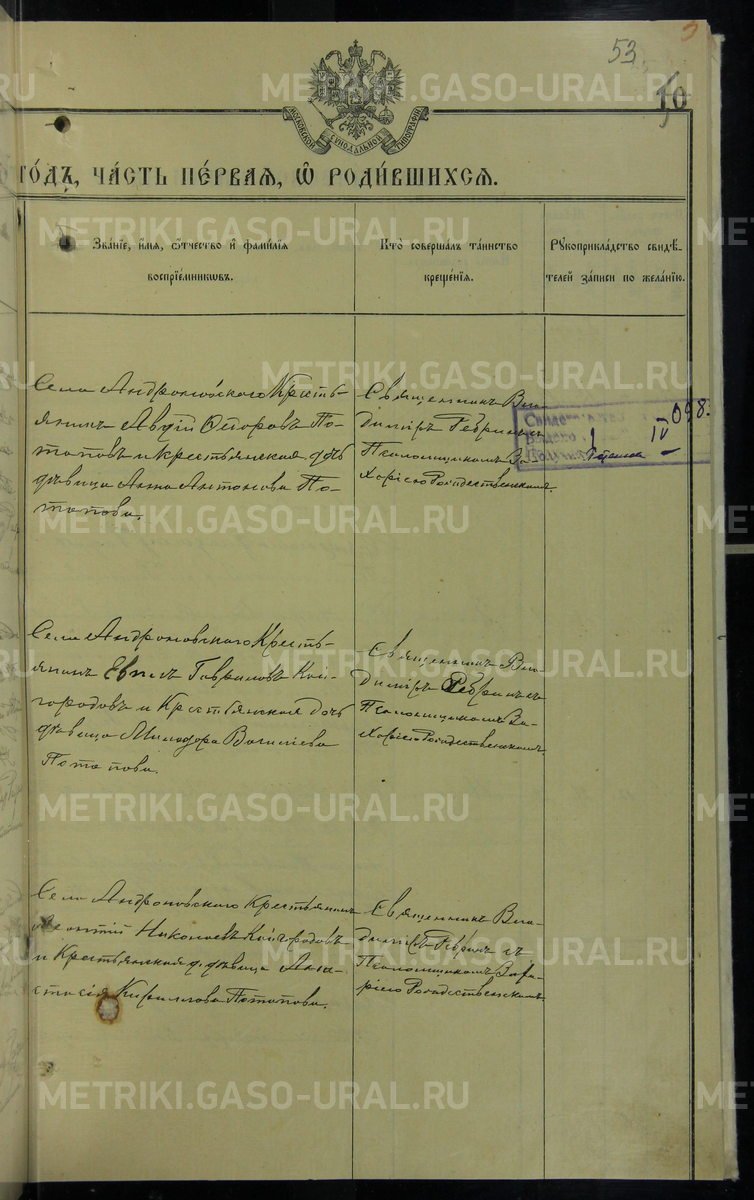 53
МОСКОВСКОЙ СѴНОДАЛЬНОЙ ТИПОГРАФІИ
ГО́ДЪ, ЧА́СТЬ ПЕ́РВАѦ, Ѡ҆ РОДИ́ВШИХСѦ.
Зва́нїе, и҆́мѧ, ѻ҆́тчество и҆ фами́лїѧ
воспрїе́мникѡвъ.
Кто̀ соверша́лъ та́инство
креще́нїѧ.
Рꙋкоприкла́дство свидѣ́-
телей за́писи по жела́нїю.
Села Андроновскаго Кресть-
янинъ Ѳедоровъ По-
таповъ и крестьянская дочь
дѣвица Анна Антонова По-
тапова.
Священникъ Вла-
диміръ Ребринъ съ
Псаломщикомъ За-
харіею Рождественскимъ.
098.
IV
Села Андроновскаго Кресть-
янинъ Гавриловъ Кай-
городовъ и Крестьянская дочь
дѣвица Милодора Васильева
Потапова.
Священникъ Вла-
диміръ Ребринъ съ
Псаломщикомъ За-
харіею Рождественскимъ.
Села Андроновскаго Крестьянинъ
Леонтій Николаевъ Кайгородовъ
и Крестьянская д. дѣвица Ана-
стасія Кириллова Потапова.
Священникъ Вла-
диміръ Ребринъ съ
Псаломщикомъ Заха-
ріею Рождественскимъ
METRIKI.GASO-URAL.RU